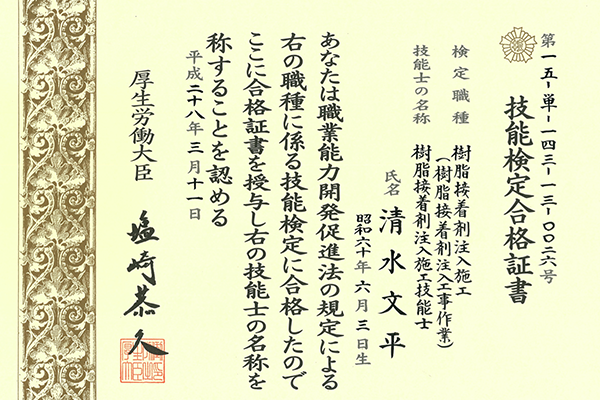 第一五-単-一四三-一三-〇〇二六号
技能検定合格証書
検定職種 樹脂接着剤注入施工
(樹脂接着剤注入工事作業)
技能士の名称 樹脂接着剤注入施工技能士
氏名 清水文平
昭和六十年六月三日生
あなたは職業能力開発促進法の規定による
右の職種に係る技能検定に合格したので
ここに合格証書を授与し右の技能士の名称を
称することを認める
平成二十八年三月十一日
厚生労働大臣 塩崎恭久